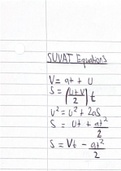 SUVAT Equations
V = at + u
S = (u+V/2) t
V² = u² + 2as
S = ut + at²/2
S = Vt - at²/2